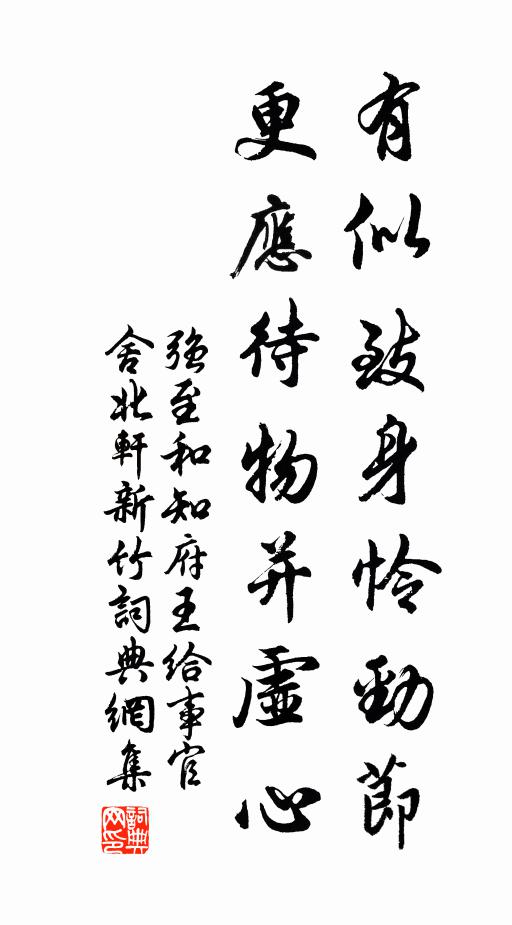 有似致身怜勁節
更應待物并虛心
強至和知府王給事官
舍北軒新竹詞典網集
詞典
网印